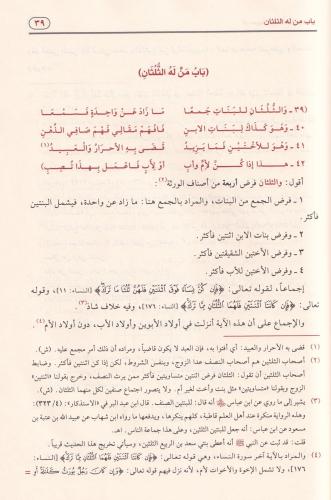 باب من له الثلثان
٣٩
(بَابُ مَنْ لَهُ الثُّلُثَانِ)
٣٩ - وَالثُّلُثَانِ لِلْبَنَاتِ جَمْعَا مَا زَادَ عَنْ وَاحِدَةٍ فَسَمْعَا
٤٠ - وَهْوَ كَذَاكَ لِبَنَاتِ الابْنِ فَافْهَمْ مَقَالِي فَهْمَ صَافِي الذِّهْنِ
٤١ - وَهْوَ لِلأُخْتَيْنِ فَمَا يَزِيدُ قَضَى بِهِ الأَحْرَارُ وَالْعَبِيدُ(١)
٤٢ - هَذَا إِذَا كُنَّ لأُمٍّ وَأَبِ أَوْ لأَبٍ فَاعْمَلْ بِهَذَا تُصِبِ
أقول: والثلثان فرض أربعة من أصناف الورثة(٢):
١ - فرض الجمع من البنات، والمراد بالجمع هنا: ما زاد عن واحدة، فيشمل البنتين
فأكثر.
٢ - وفرض بنات الابن اثنتين فأكثر.
٣ - وفرض الأختين الشقيقتين فأكثر.
٤ - وفرض الأختين للأب فأكثر.
إجماعاً، لقوله تعالى: ﴿فَإِن كُنَّ نِسَاءً فَوْقَ اثْنَتَيْنِ فَلَهُنَّ ثُلُثَا مَا تَرَكَ﴾ [النساء: ١١]، وقوله
تعالى: ﴿فَإِن كَانَتَا اثْنَتَيْنِ فَلَهُمَا الثُّلُثَانِ مِمَّا تَرَكَ﴾ [النساء: ١٧٦]، وفيه خلاف شاذ(٣)
والإجماع على أن هذه الآية أنزلت في أولاد الأبوين وأولاد الأب، دون أولاد الأم.(٤)
(١) قضى به الأحرار والعبيد: أي أفتوا به، فإن العبد لا يكون قاضياً، ومراده أن ذلك أمر مجمع عليه. (ش).
(٢) أصحاب الثلثين هم أصحاب النصف عدا الزوج، وبنفس الشروط، لكن إذا كن اثنتين فأكثر. وضابط
أصحاب الثلثان أن تقول: الثلثان فرض اثنتين متساويتين فأكثر ممن يرث النصف، وخرج بقولنا «اثنتين»
الزوج وبقولنا «متساويتين» مثل بنت وأخت لغير أم. ولا يتصور اجتماع صنفين لكل منهما الثلثان. (ش).
(٣) يشير إلى ما روي عن ابن عباس أنه قال: للبنتين النصف. قال ابن عبد البر في «الاستذكار» (٣٢٣/٤):
وهذه الرواية منكرة عند أهل العلم قاطبة، كلهم ينكرها، ويدفعها ما رواه ابن شهاب عن عبيد الله بن عتبة بن
مسعود عن ابن عباس أنه جعل للبنتين الثلثين، وعلى هذا جماعة الناس. اهـ.
قلت: قد ثبت عن النبي ﷺ أنه أعطى بنتي سعد بن الربيع الثلثين، وسيأتي تخريج هذا الحديث قريباً.
(٤) والمراد بالآية آخر سورة النساء، وهي قوله تعالى: ﴿فَإِن كَانَتَا اثْنَتَيْنِ فَلَهُمَا الثُّلُثَانِ مِمَّا تَرَكَ﴾ [النساء:
١٧٦]، ولا تشمل الإخوة والأخوات لأم، لأنه نزل فيهم قوله تعالى: ﴿وَإِن كَانَ رَجُلٌ يُورَثُ كَلَالَةً =